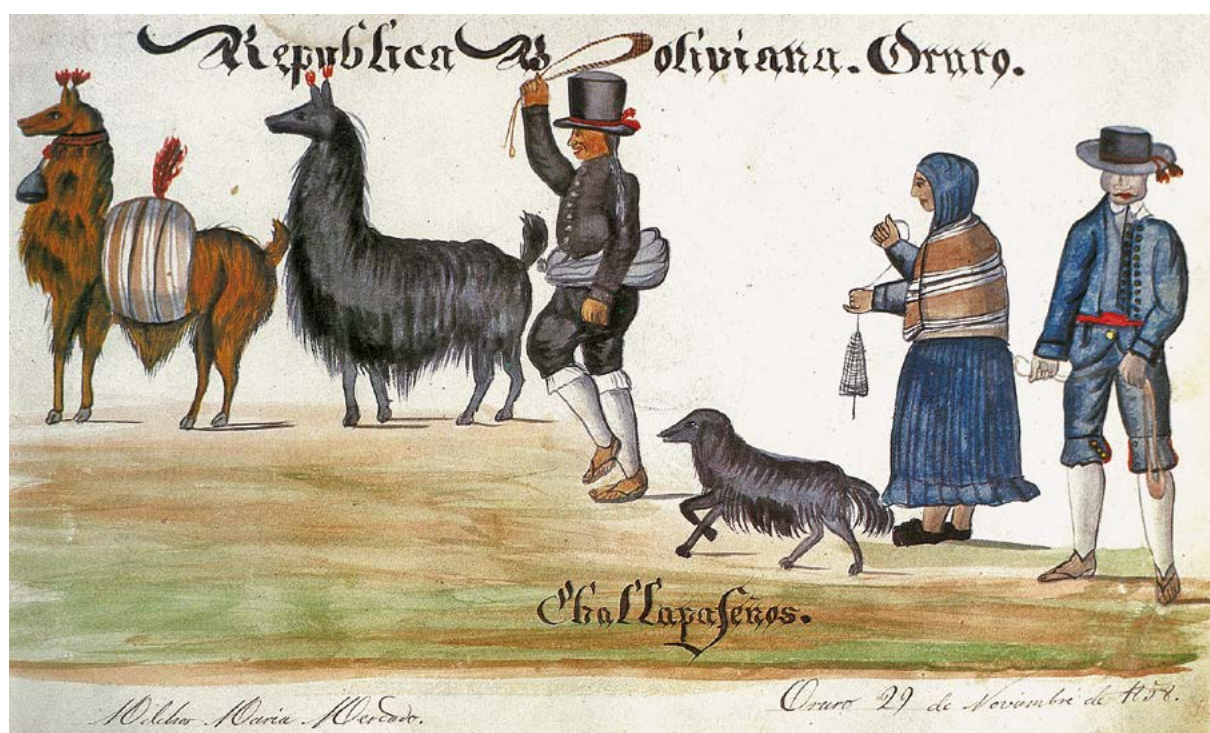 Republica Boliviana. Oruro.
Challapaseños.
Melchor Maria Mercado.
Oruro 29 de Noviembre de 1858.